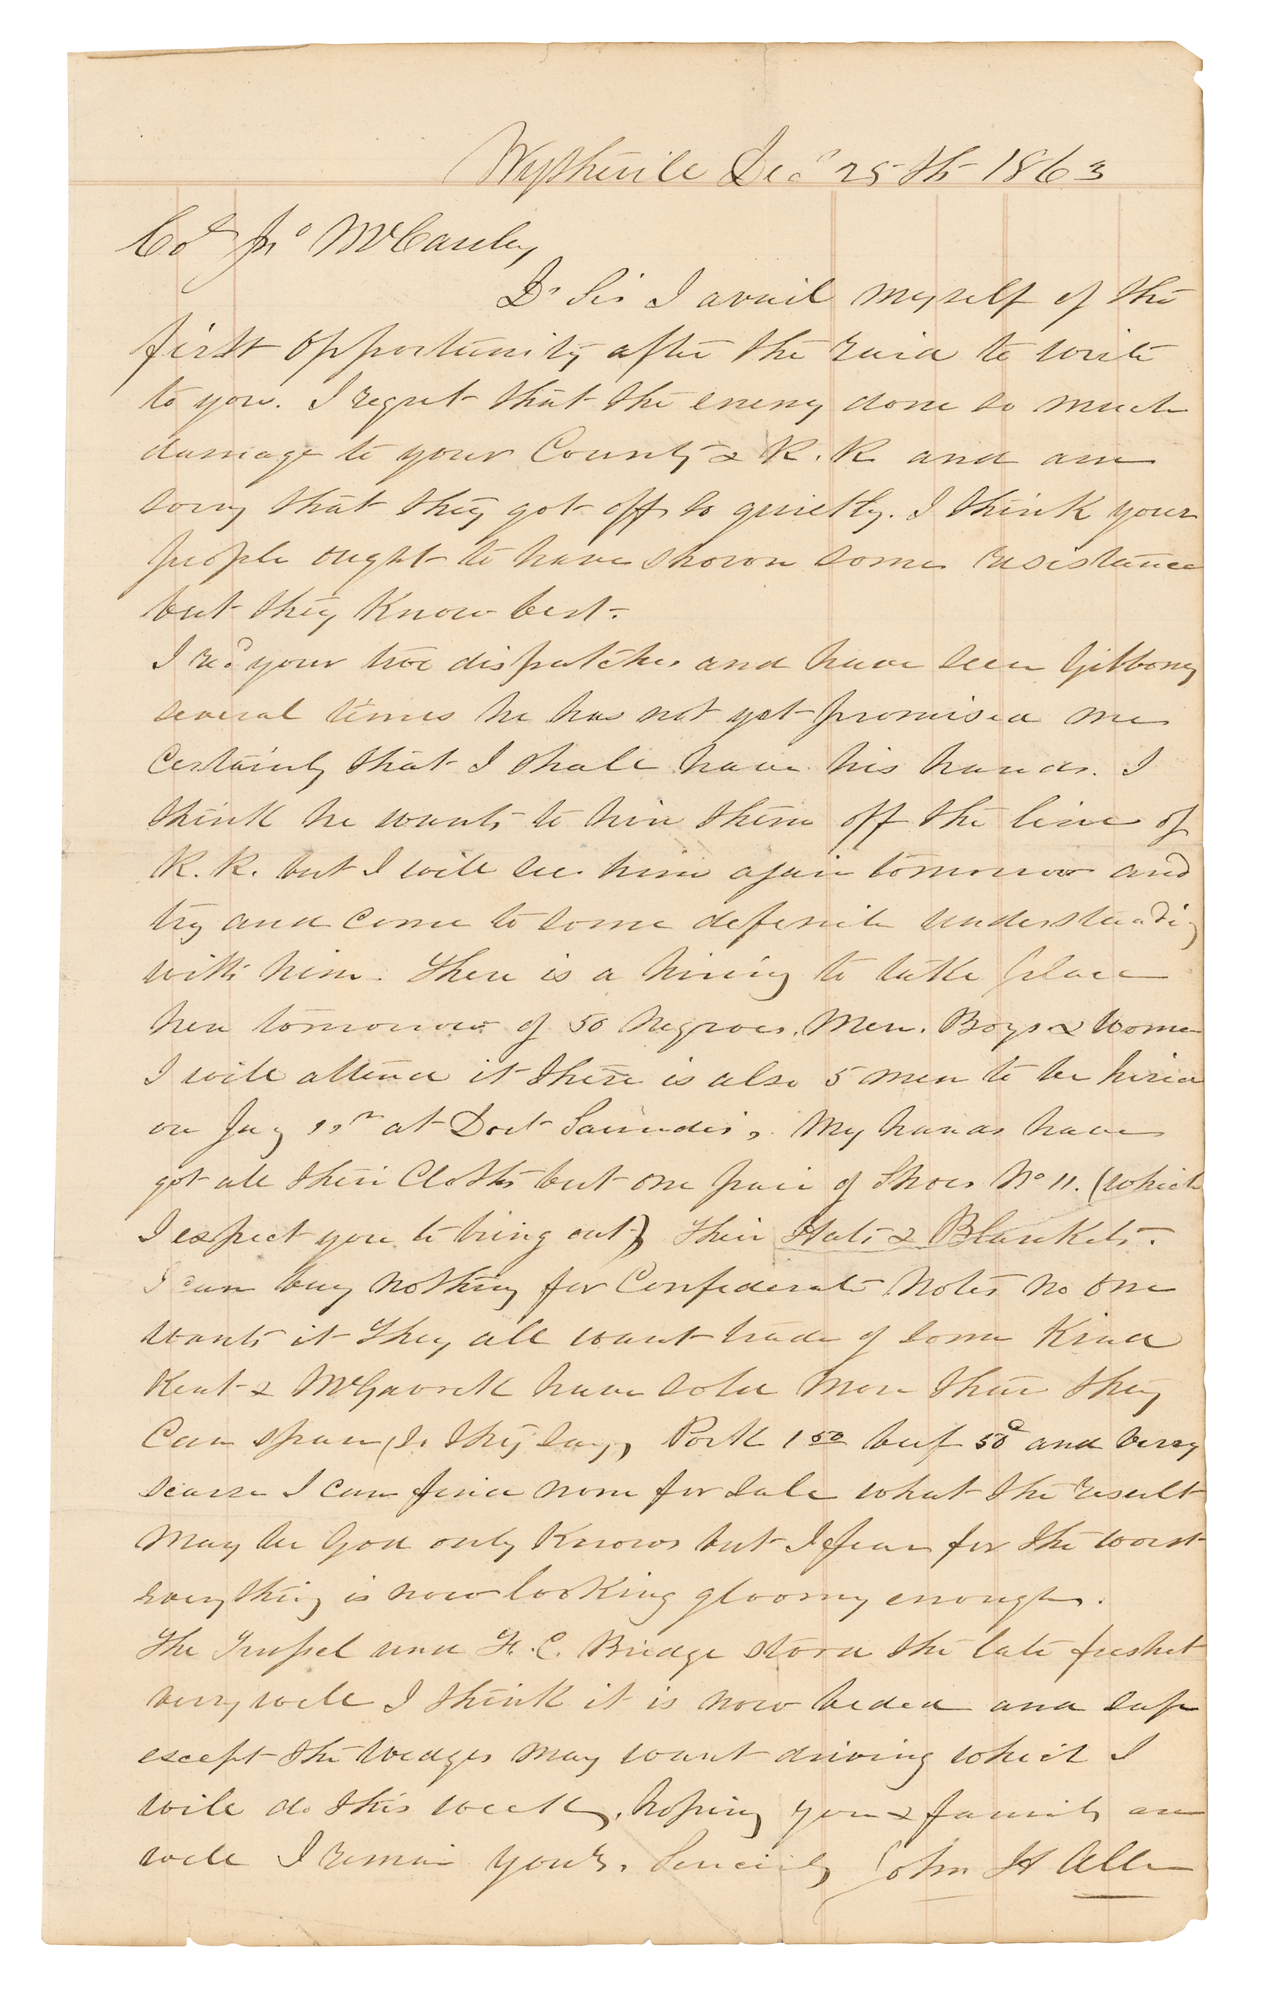 Wytheville Decr 25th 1863
Col Jno McCauley
Dr Sir I avail myself of the
first opportunity after the raid to write
to you. I regret that the enemy done so much
damage to your County & R.R and am
sorry that they got off so quietly. I think your
people ought to have shown some resistance
but they know best.
I recd your two dispatches and have seen Gibboney
several times he has not yet promised me
certainly that I shall have his hands. I
think he wants to hire them off the line of
R.R. but I will see him again tomorrow and
try and come to some definite understanding
with him. There is a hiring to take place
here tomorrow of 50 negroes. Men. Boys & Women
I will attend it there is also 5 men to be hired
on Jny at Doct Saunders, My hands have
got all their Cloths but one pair of Shoes No 11. (which
I expect you to bring out) their Hats & Blankets.
I can buy nothing for Confederate Notes no one
wants it they all want trade of some kind
Kent & McGavock have sold more than they
can spare (so they say) Pork 1 50 beef 50c and very
scarse I can find none for sale what the result
may be God only knows but I fear for the worst
everything is now looking gloomy enough.
The Trussel and Bridge stood the late freshet
very well I think it is now beded and safe
except the wedges may want driving which I
will do this week, hoping you & family are
well I remain yours, Sincerely John H Allen